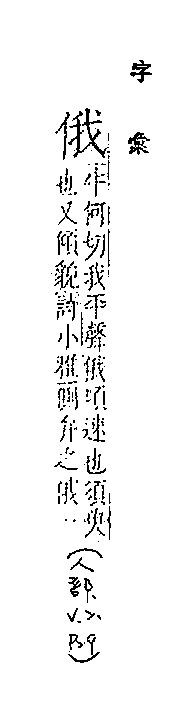 字彙
俄
牛何切我平聲俄頃速也須臾
也又傾貌詩小雅側弁之俄‥
(人部.